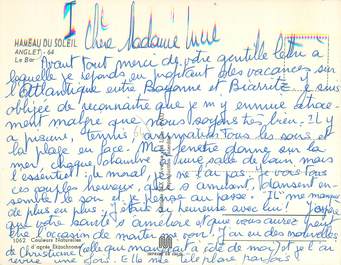 I Chère Madame Lucie
HAMEAU DU SOLEIL
ANGLET - 64
Le Bar
Avant tout merci de votre gentille lettre à
laquelle je réponds en profitant des vacances sur
l'Atlantique entre Bayonne et Biarritz. Je suis
obligée de reconnaître que je m'y ennuie
malgré que nous soyons très bien. Il y
a piscine, tennis, tous les soirs et
la plage en face. Ma fenêtre donne sur la
mer, chaque chambre a une salle de bain mais
l'essentiel, le moral, je ne l'ai pas. Je vois tous
ces couples heureux, qui s'amusent, dansent en-
semble le soir et je pense au passé. Il me manque
de plus en plus. J'étais si heureuse avec lui! J'espère
que votre santé s'améliore et que vous aurez
l'occasion de monter me voir. J'ai eu des nouvelles
de Christiane (celle qui mangeait à côté de moi) et je l'ai
une fois. Elle me téléphone parfois
1062 Couleurs Naturelles
d'après Ektachrome